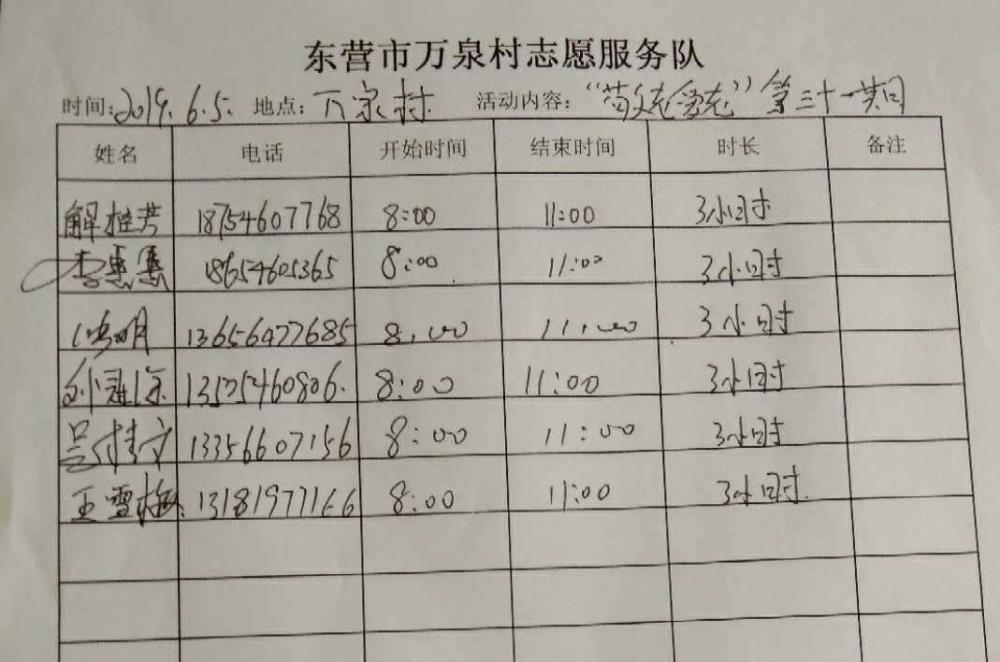 东营市万泉村志愿服务队
时间:2019.6.5. 地点:万泉村 活动内容:" "第三十一期
姓名 电话 开始时间 结束时间 时长 备注
解桂芳 18754607768 8:00 11:00 3小时
李惠惠 18654605365 8:00 11:00 3小时
明 13656477685 8:00 11:00 3小时
13575460806. 8:00 11:00 3小时
吴桂文 13356607156 8:00 11:00 3小时
王雪梅 13181977166 8:00 11:00 3小时.